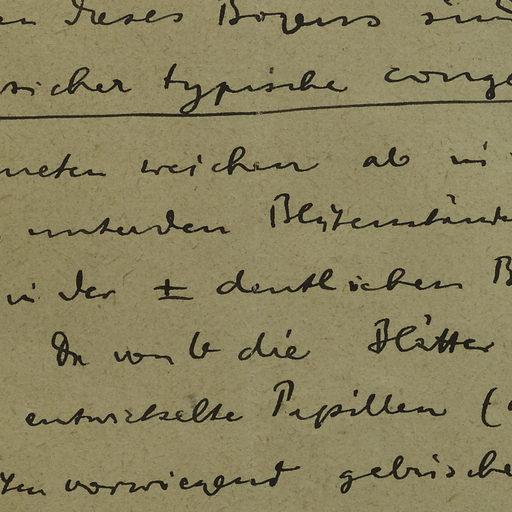 dieses Bogens sind
sicher typische conge
weichen ab in
unter den Blütenstände
in der ± deutlichen B
die Blätter
entwickelte Papillen (
vorwiegend gebüsche